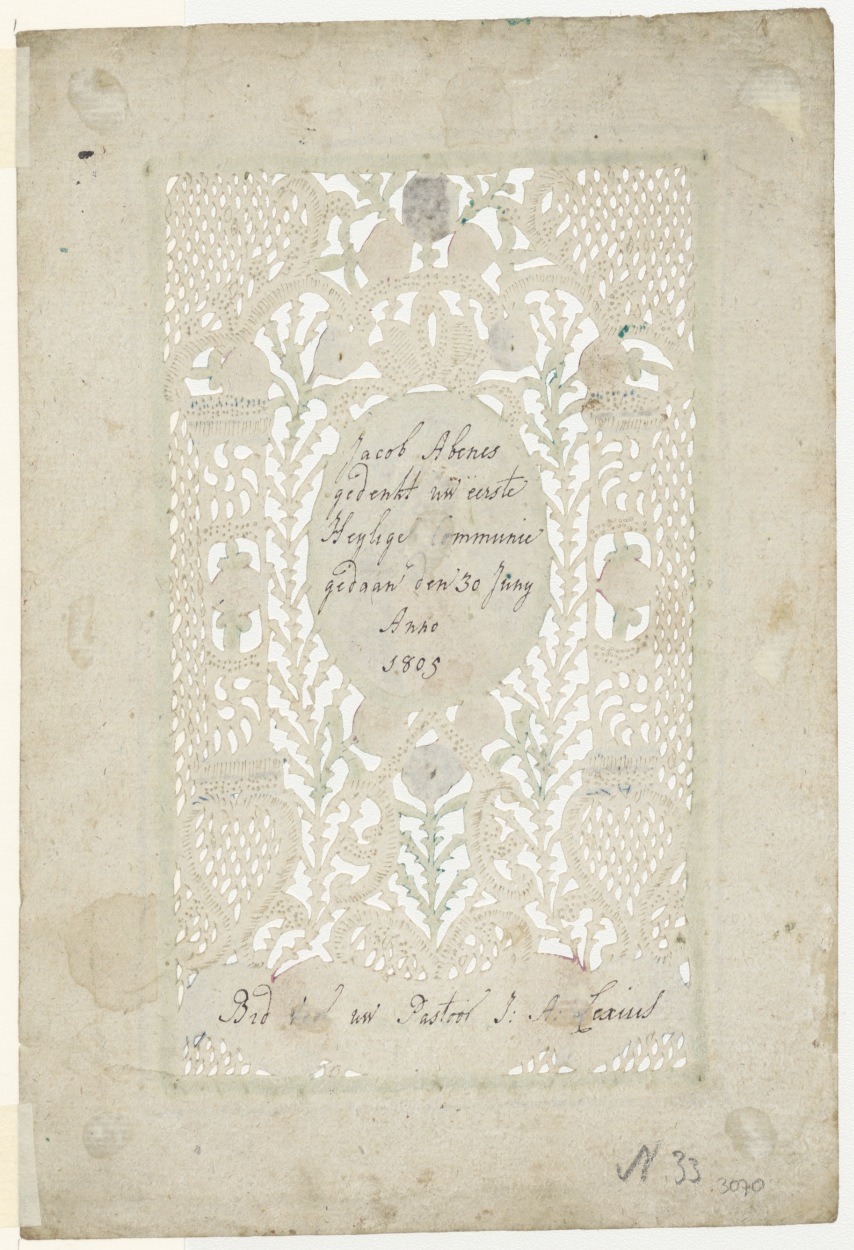 Jacob Abenes
gedenkt uw eerste
Heylige Communie
gedaan den 30 Juny
Anno
1805
Bid voor uw Pastoor J: A: Lexius
N 33
3070